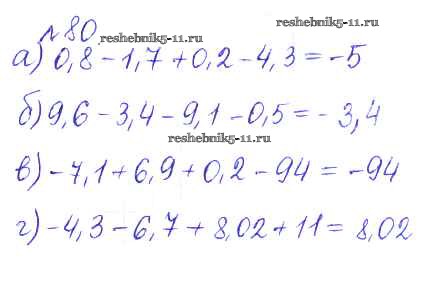 №80
reshebnik5-11.ru
reshebnik5-11.ru
а) 0,8 - 1,7 + 0,2 - 4,3 = -5
б) 9,6 - 3,4 - 9,1 - 0,5 = - 3,4
reshebnik5-11.ru
в) - 7,1 + 6,9 + 0,2 - 94 = - 94
г) - 4,3 - 6,7 + 8,02 + 11 = 8,02